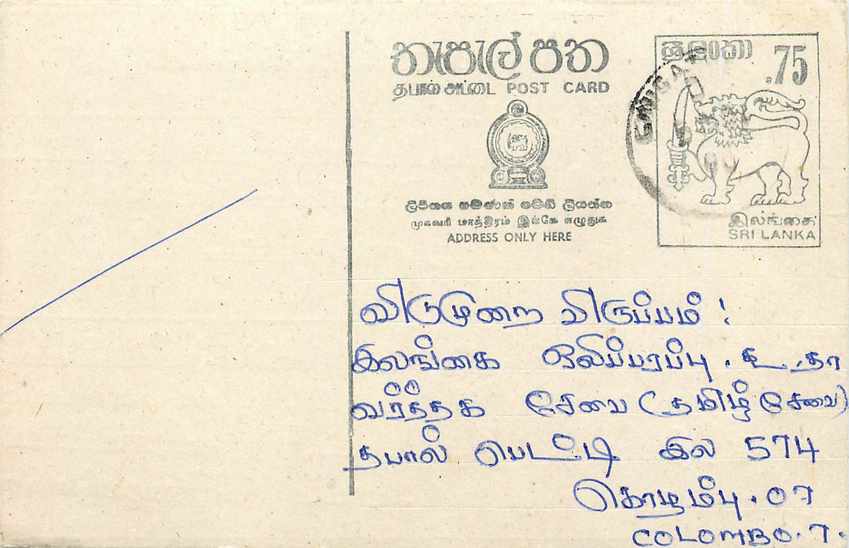 තැපැල් පත
தபால் அட்டை POST CARD
ලිපිනය පමණක් මෙහි ලියන්න
முகவரி மாத்திரம் இங்கே எழுதுக
ADDRESS ONLY HERE
ශ්‍රී ලංකා
.75
இலங்கை
SRI LANKA
விடுமுறை விருப்பம் !
இலங்கை ஒலிப்பரப்பு . கூ . தா
வர்த்தக சேவை (தமிழ் சேவை)
தபால் பெட்டி இல 574
கொழம்பு . 07
COLOMBO . 7 .